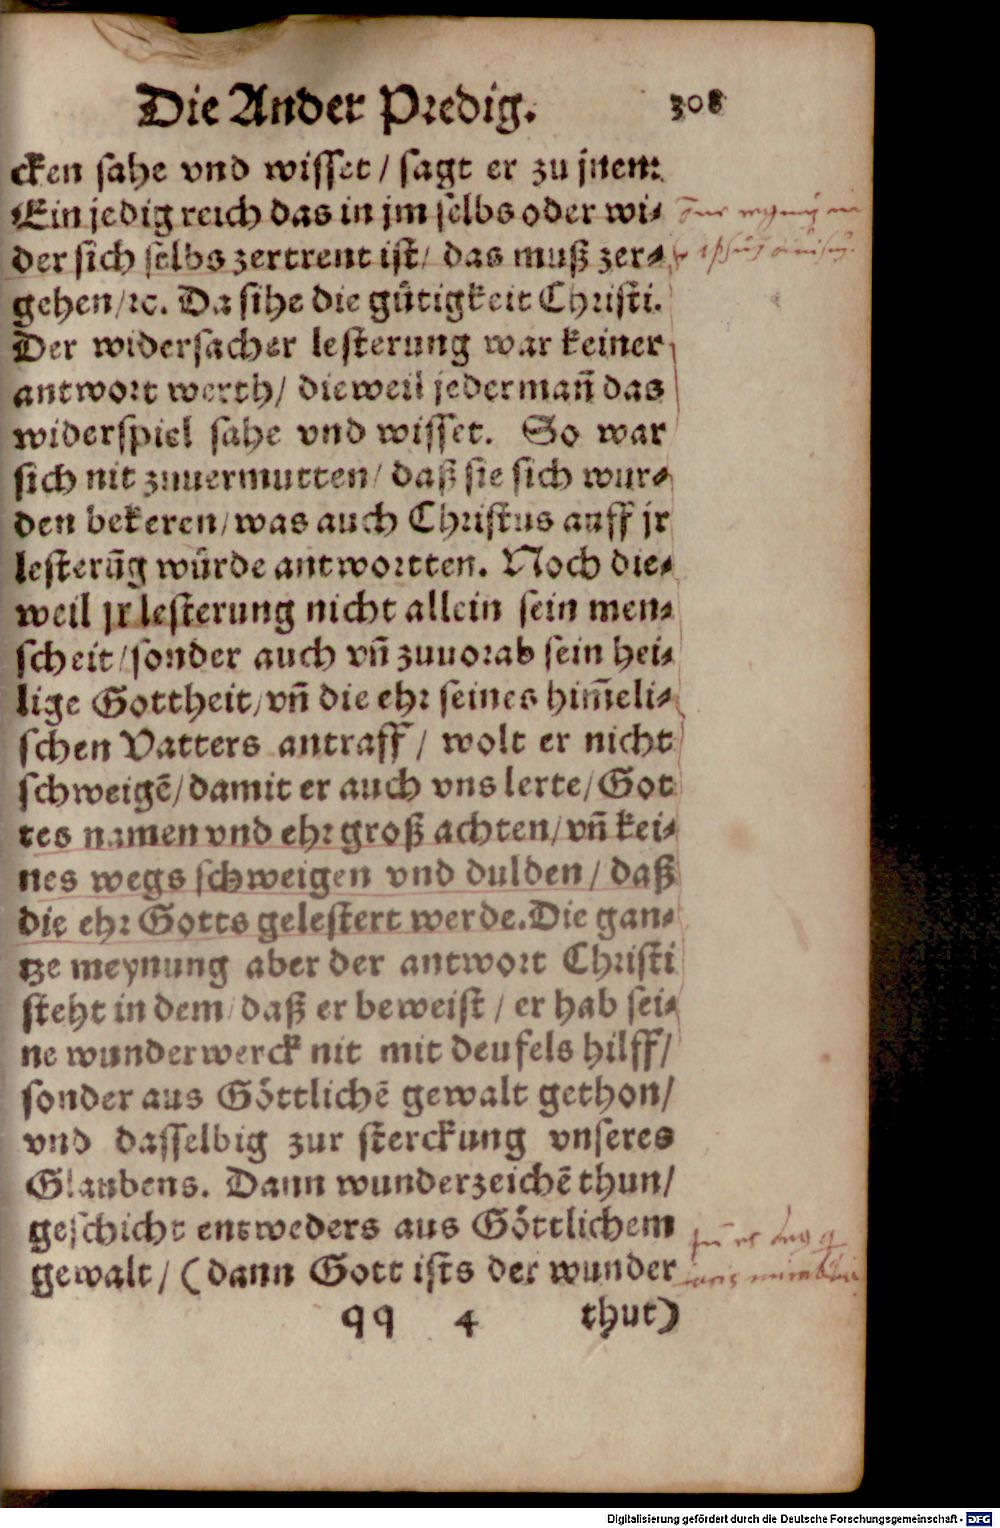 Die Ander Predig. 308
cken sahe vnd wisset / sagt er zu jnen:
Ein jedig reich das in jm selbs oder wi-
der sich selbs zertrent ist / das muß zer-
gehen / ꝛc. Da sihe die gütigkeit Christi.
Der widersacher lesterung war keiner
antwort werth / dieweil jederman̄ das
widerspiel sahe vnd wisset. So war
sich nit zuuermutten / daß sie sich wur-
den bekeren / was auch Christus auff jr
lesterūg würde antwortten. Noch die-
weil jr lesterung nicht allein sein men-
scheit / sonder auch vn̄ zuuorab sein hei-
lige Gottheit / vn̄ die ehr seines him̄eli-
schen Vatters antraff / wolt er nicht
schweigē / damit er auch vns lerte / Got
tes namen vnd ehr groß achten / vn̄ kei-
nes wegs schweigen vnd dulden / daß
die ehr Gotts gelestert werde. Die gan-
tze meynung aber der antwort Christi
steht in dem / daß er beweist / er hab sei-
ne wunderwerck nit mit deufels hilff /
sonder aus Göttlichē gewalt gethon /
vnd dasselbig zur sterckung vnseres
Glaubens. Dann wunderzeichē thun /
geschicht entweders aus Göttlichem
gewalt / (dann Gott ists der wunder
qq 4 thut)
Digitalisierung gefördert durch die Deutsche Forschungsgemeinschaft - DFG